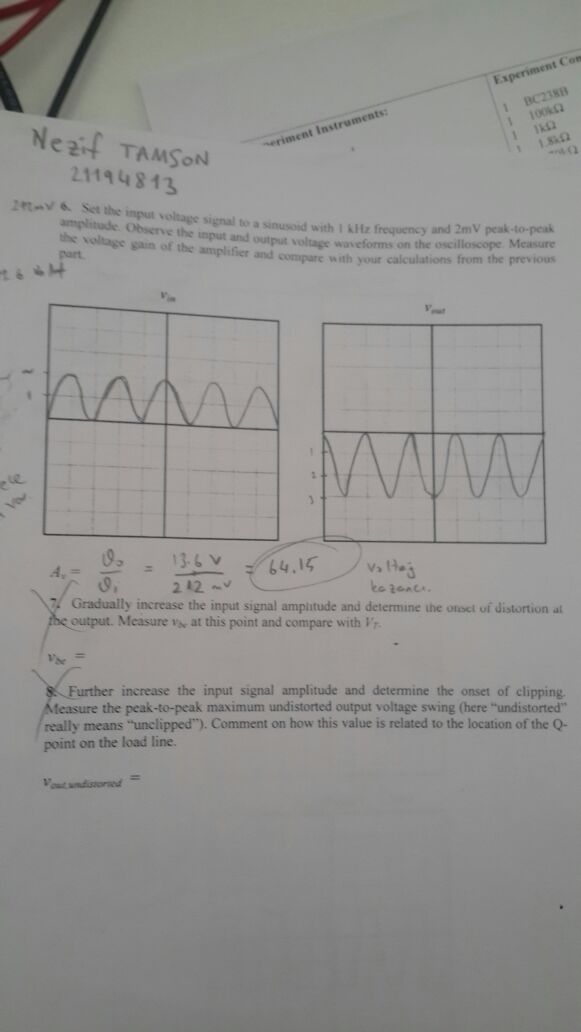 Experiment Com
eriment Instruments:
1 BC238B
1 100kΩ
1 1kΩ
1 1.8kΩ
Nezif TAMSON
21194813
212mV 6. Set the input voltage signal to a sinusoid with 1 kHz frequency and 2mV peak-to-peak
amplitude. Observe the input and output voltage waveforms on the oscilloscope. Measure
the voltage gain of the amplifier and compare with your calculations from the previous
part.
Vin
Vout
1
1
2
3
Av = ϑo/ϑi = 13.6 V/212 mV = 64.15 Voltaj
kazancı.
7. Gradually increase the input signal amplitude and determine the onset of distortion at
the output. Measure vbe at this point and compare with VT.
vbe =
8. Further increase the input signal amplitude and determine the onset of clipping.
Measure the peak-to-peak maximum undistorted output voltage swing (here “undistorted”
really means “unclipped”). Comment on how this value is related to the location of the Q-
point on the load line.
vout,undistorted =